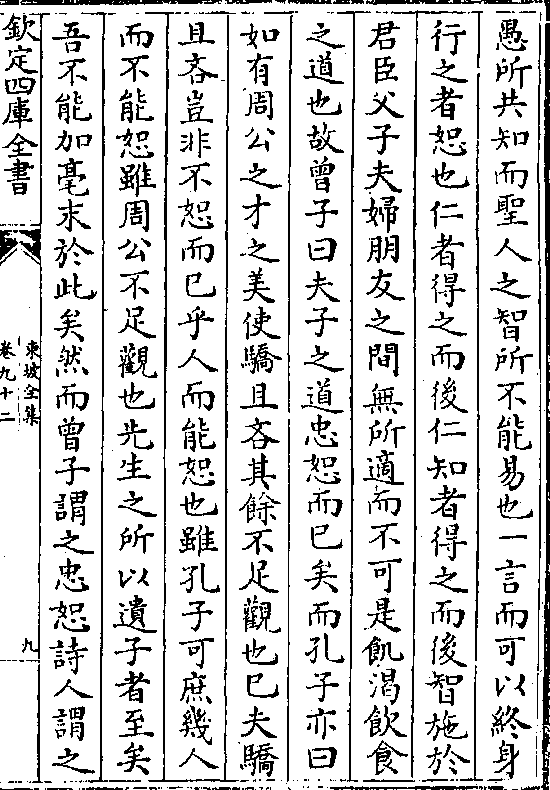 愚所共知而聖人之智所不能易也一言而可以終身
行之者恕也仁者得之而後仁知者得之而後智施於
君臣父子夫婦朋友之間無所適而不可是飢渴飲食
之道也故曾子曰夫子之道忠恕而已矣而孔子亦曰
如有周公之才之美使驕且吝其餘不足觀也已夫驕
且吝豈非不恕而已乎人而能恕也雖孔子可庶幾人
而不能恕雖周公不足觀也先生之所以遺子者至矣
吾不能加毫末於此矣然而曾子謂之忠恕詩人謂之
欽定四庫全書
東坡全集
卷九十二
九